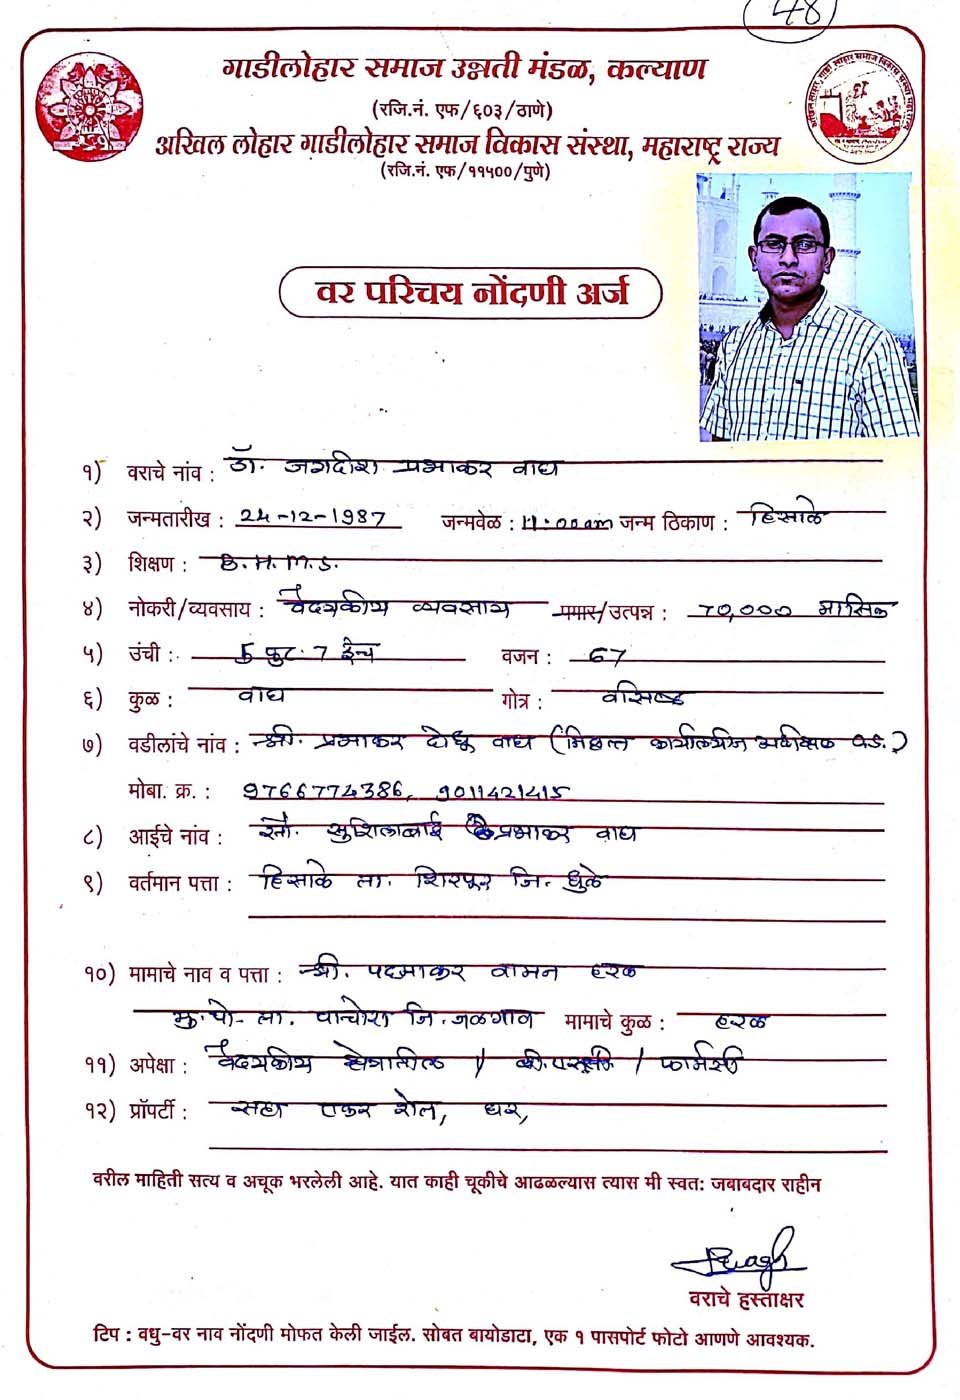 48
गाडीलोहार समाज उन्नती मंडळ, कल्याण
(रजि.नं. एफ/६०३/ठाणे)
अखिल लोहार गाडीलोहार समाज विकास संस्था, महाराष्ट्र राज्य
(रजि.नं. एफ/११५००/पुणे)
वर परिचय नोंदणी अर्ज
१) वराचे नांव : डॉ. जगदीश प्रभाकर वाघ
२) जन्मतारीख : 24-12-1987 जन्मवेळ : 11:00am जन्म ठिकाण : हिसाळे
३) शिक्षण : B.H.M.S.
४) नोकरी/व्यवसाय : वैद्यकीय व्यवसाय पगार/उत्पन्न : 70,000 मासिक
५) उंची : 5 फुट 7 इन्च वजन : 67
६) कुळ : वाघ गोत्र : वसिष्ठ
७) वडीलांचे नांव : श्री. प्रभाकर दोधू वाघ (निवृत्त कार्यालयीन अधीक्षक
मोबा. क्र. : 9766774386, 9011421415
८) आईचे नांव : सौ. सुशिलाबाई प्रभाकर वाघ
९) वर्तमान पत्ता : हिसाळे ता. शिरपूर जि. धुळे
१०) मामाचे नाव व पत्ता : श्री. पदमाकर वामन हरळ
मु.पो. ता. पाचोरा जि. जळगाव मामाचे कुळ : हरळ
११) अपेक्षा : वैद्यकीय क्षेत्रातील / बी.एससी. / फार्मसी
१२) प्रॉपर्टी : सहा एकर शेत, घर,
वरील माहिती सत्य व अचूक भरलेली आहे. यात काही चूकीचे आढळल्यास त्यास मी स्वत: जबाबदार राहीन
वराचे हस्ताक्षर
टिप : वधु-वर नाव नोंदणी मोफत केली जाईल. सोबत बायोडाटा, एक १ पासपोर्ट फोटो आणणे आवश्यक.